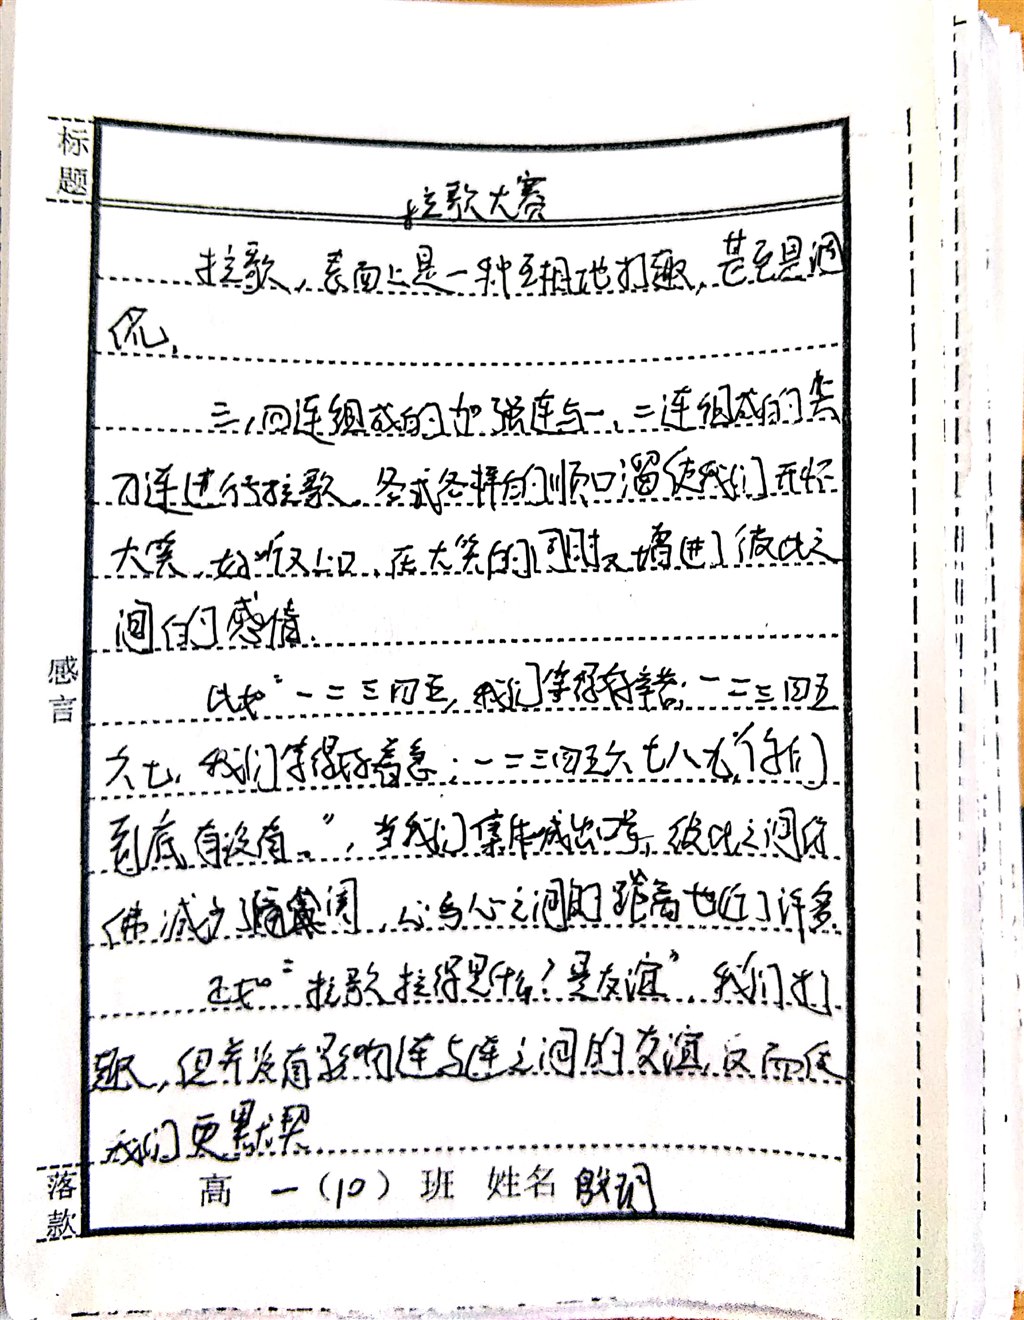 标题
拉歌大赛
拉歌，表面上是一种互相地打趣，甚至是调
侃。
三、四连组成的加强连与一、二连组成的尖
刀连进行拉歌。各式各样的顺口溜使我们开怀
大笑，好听又上口，在大笑的同时又增进了彼此之
间的感情。
比如“一二三四五，我们等得好辛苦；一二三四五
六七，我们等得好着急；一二三四五六七八九，你们
到底有没有。”，当我们集体喊出口号，彼此之间仿
佛减少了隔阂，心与心之间的距离也近了许多。
还如“拉歌拉得是什么？是友谊”，我们打
趣，但并没有影响连与连之间的友谊，反而使
我们更默契
感言
落款
高一（10）班 姓名